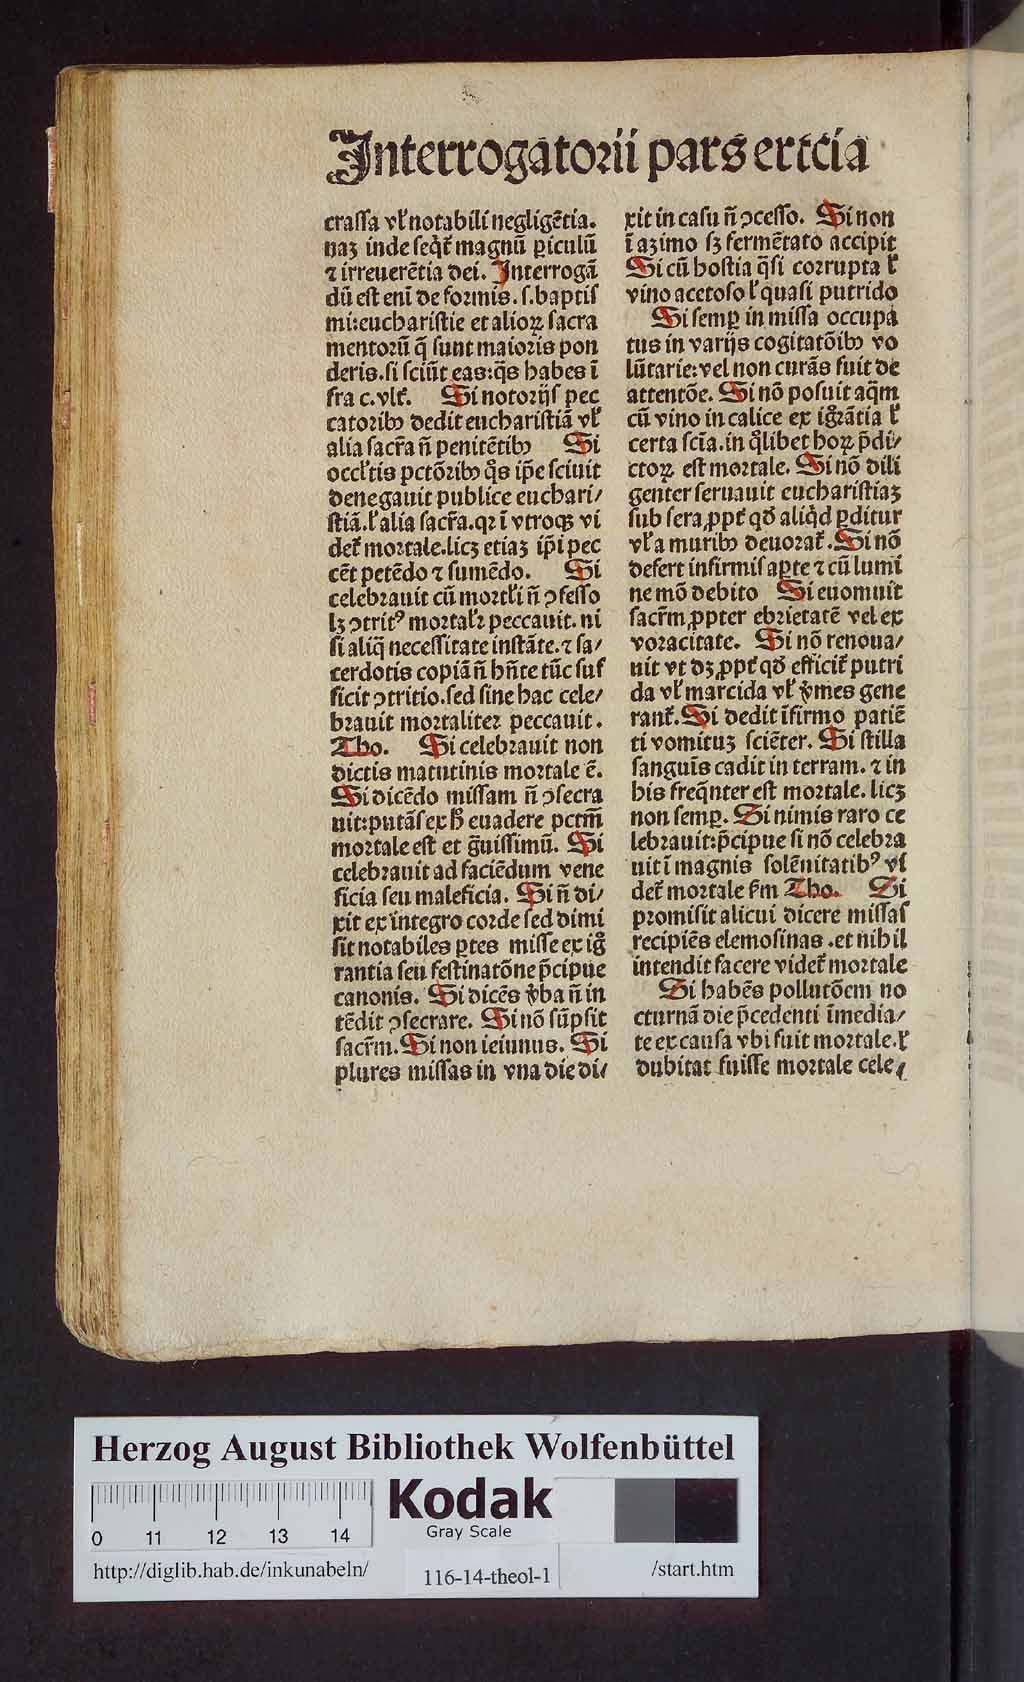 Interrogatorii pars ertcia
crassa vł notabili negligētia.
naz inde seqt̄ magnū ꝑiculū
⁊ irreuerētia dei. Interrogā
dū est eni de formis. s. baptis
mi: eucharistie et alioꝝ sacra
mentorū q̄ sunt maioris pon
deris. si sciūt eas: q̄s habes ī
fra c. vlt̄. Si notorijs pec
catoribꝰ dedit eucharistiā vł
alia sacr̄a n̄ penitētibꝰ Si
occl̄tis pctōribꝰ q̄s ip̄e sciuit
denegauit publice euchari/
stiā. ł alia sacr̄a. qꝛ ī vtroqꝫ vi
det̄ mortale. licꝫ etiaꝫ ip̄i pec
cēt petēdo ⁊ sumēdo. Si
celebrauit cū mortl̄i n̄ ꝯfesso
lꝫ ꝯtritꝰ mortalr̄ peccauit. ni
si aliq̄ necessitate instāte. ⁊ sa/
cerdotis copiā n̄ hn̄te tūc suf
ficit ꝯtritio. sed sine hac cele/
brauit mortaliter peccauit.
Tho. Si celebrauit non
dictis matutinis mortale ē.
Si dicēdo missam n̄ ꝯsecra
uit: putās ex h̄ euadere pctm̄
mortale est et g̃uissimū. Si
celebrauit ad faciēdum vene
ficia seu maleficia. Si n̄ di/
xit ex integro corde sed dimi
sit notabiles ꝑtes misse ex ig̃
rantia seu festinatōne p̄cipue
canonis. Si dicēs v̄ba n̄ in
tēdit ꝯsecrare. Si nō sūpsit
sacr̄m. Si non ieiunus. Si
plures missas in vna die di/
xit in casu n̄ ꝯcesso. Si non
ī azimo sꝫ fermētato accipit
Si cū hostia q̄si corrupta ł
vino acetoso ł quasi putrido
Si semꝑ in missa occupa
tus in varijs cogitatōibꝰ vo
lūtarie: vel non curās fuit de
attentōe. Si nō posuit aq̄m
cū vino in calice ex ig̃rātia ł
certa scīa. in q̄libet hoꝝ p̄di/
ctoꝝ est mortale. Si nō dili
genter seruauit eucharistiaꝫ
sub sera ꝓpt̄ qđ aliq̄d ꝑditur
vł a muribꝰ deuorat̄. Si nō
defert infirmis aꝑte ⁊ cū lumi
ne mō debito Si euomuit
sacr̄m ꝓpter ebrietatē vel ex
voracitate. Si nō renoua/
uit vt dꝫ ꝓpt̄ qđ efficit̄ putri
da vł marcida vł v̄mes gene
rant̄. Si dedit īfirmo patiē
ti vomituꝫ sciēter. Si stilla
sanguīs cadit in terram. ⁊ in
his freq̄nter est mortale. licꝫ
non semꝑ. Si nimis raro ce
lebrauit: p̄cipue si nō celebra
uit ī magnis solēnitatibꝰ vi
det̄ mortale s̄m Tho. Si
promisit alicui dicere missas
recipiēs elemosinas. et nihil
intendit facere videt̄ mortale
Si habēs pollutōem no
cturnā die p̄cedenti īmedia/
te ex causa vbi fuit mortale. ł
dubitat fuisse mortale cele/
Herzog August Bibliothek Wolfenbüttel
0 11 12 13 14
Kodak
Gray Scale
http://diglib.hab.de/inkunabeln/ 116-14-theol-1 /start.htm